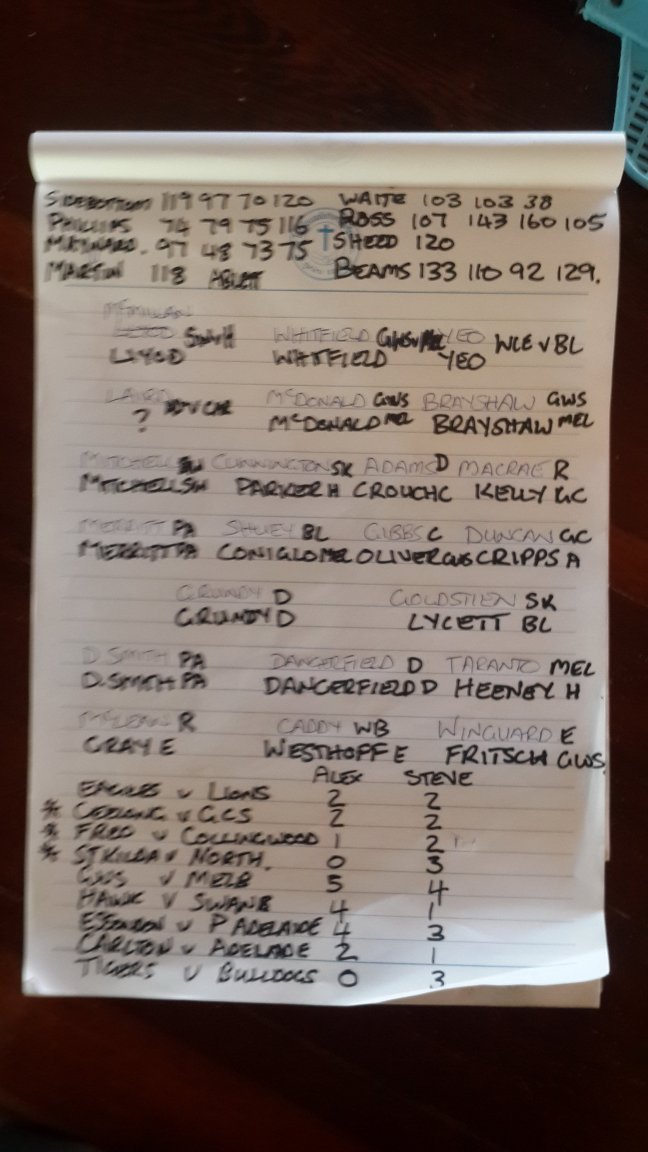 SIDEBOTTOM 119 97 70 120 WAITE 103 103 38
PHILLIPS 74 79 75 116 ROSS 107 143 160 105
MAYNARD. 97 48 73 75 SHEED 120
MARTIN 118 ABLETT BEAMS 133 110 92 129.
MCMILLAN
WHITFIELD YEO WCE v BL
LLOYD WHITFIELD YEO
LAIRD MCDONALD GWS BRAYSHAW GWS
? MCDONALD MEL BRAYSHAW MEL
MITCHELL CUNNINGTON SK ADAMS D MACRAE R
MITCHELL SH PARKER H CROUCH C KELLY GC
MERRITT PA SHUEY BL GIBBS C DUNCAN GC
MERRITT PA CONIGLO MEL OLIVER GWS CRIPPS A
GRUNDY D GOLDSTIEN SK
GRUNDY D LYCETT BL
D.SMITH PA DANGERFIELD D TARANTO MEL
D.SMITH PA DANGERFIELD D HEENEY H
MCLEAN R CADDY WB WINGUARD E
GRAY E WESTHOFF E FRITSCH GWS
ALEX STEVE
EAGLES v LIONS 2 2
* GEELONG v GCS 2 2
* FREO v COLLINGWOOD 1 2
* ST KILDA v NORTH. 0 3
GWS v MELB 5 4
HAWK v SWANS 4 1
ESSENDON v P ADELAIDE 4 3
CARLTON v ADELAIDE 2 1
TIGERS v BULLDOGS 0 3